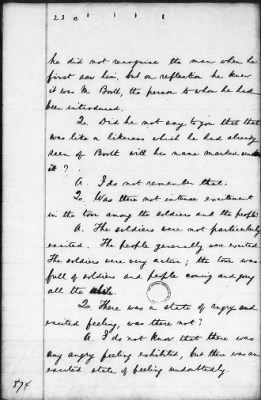 23
he did not recognise the man when he
first saw him, but on reflection he knew
it was Mr Booth, the person to whom he had
been introduced.
Q. Did he not say to you that that
was like a likeness which he had already
seen of Booth with his name marked under
it?
A. I do not remember that.
Q. Was there not intense excitement
in the town among the soldiers and the people?
A. The soldiers were not particularly
excited. The people generally were excited.
The soldiers were very active; the town was
full of soldiers and people coming and going
all the while.
Q. There was a state of angry and
excited feeling, was there not?
A. I do not know that there was
any angry feeling exhibited, but there was an
excited state of feeling undoubtedly.
874